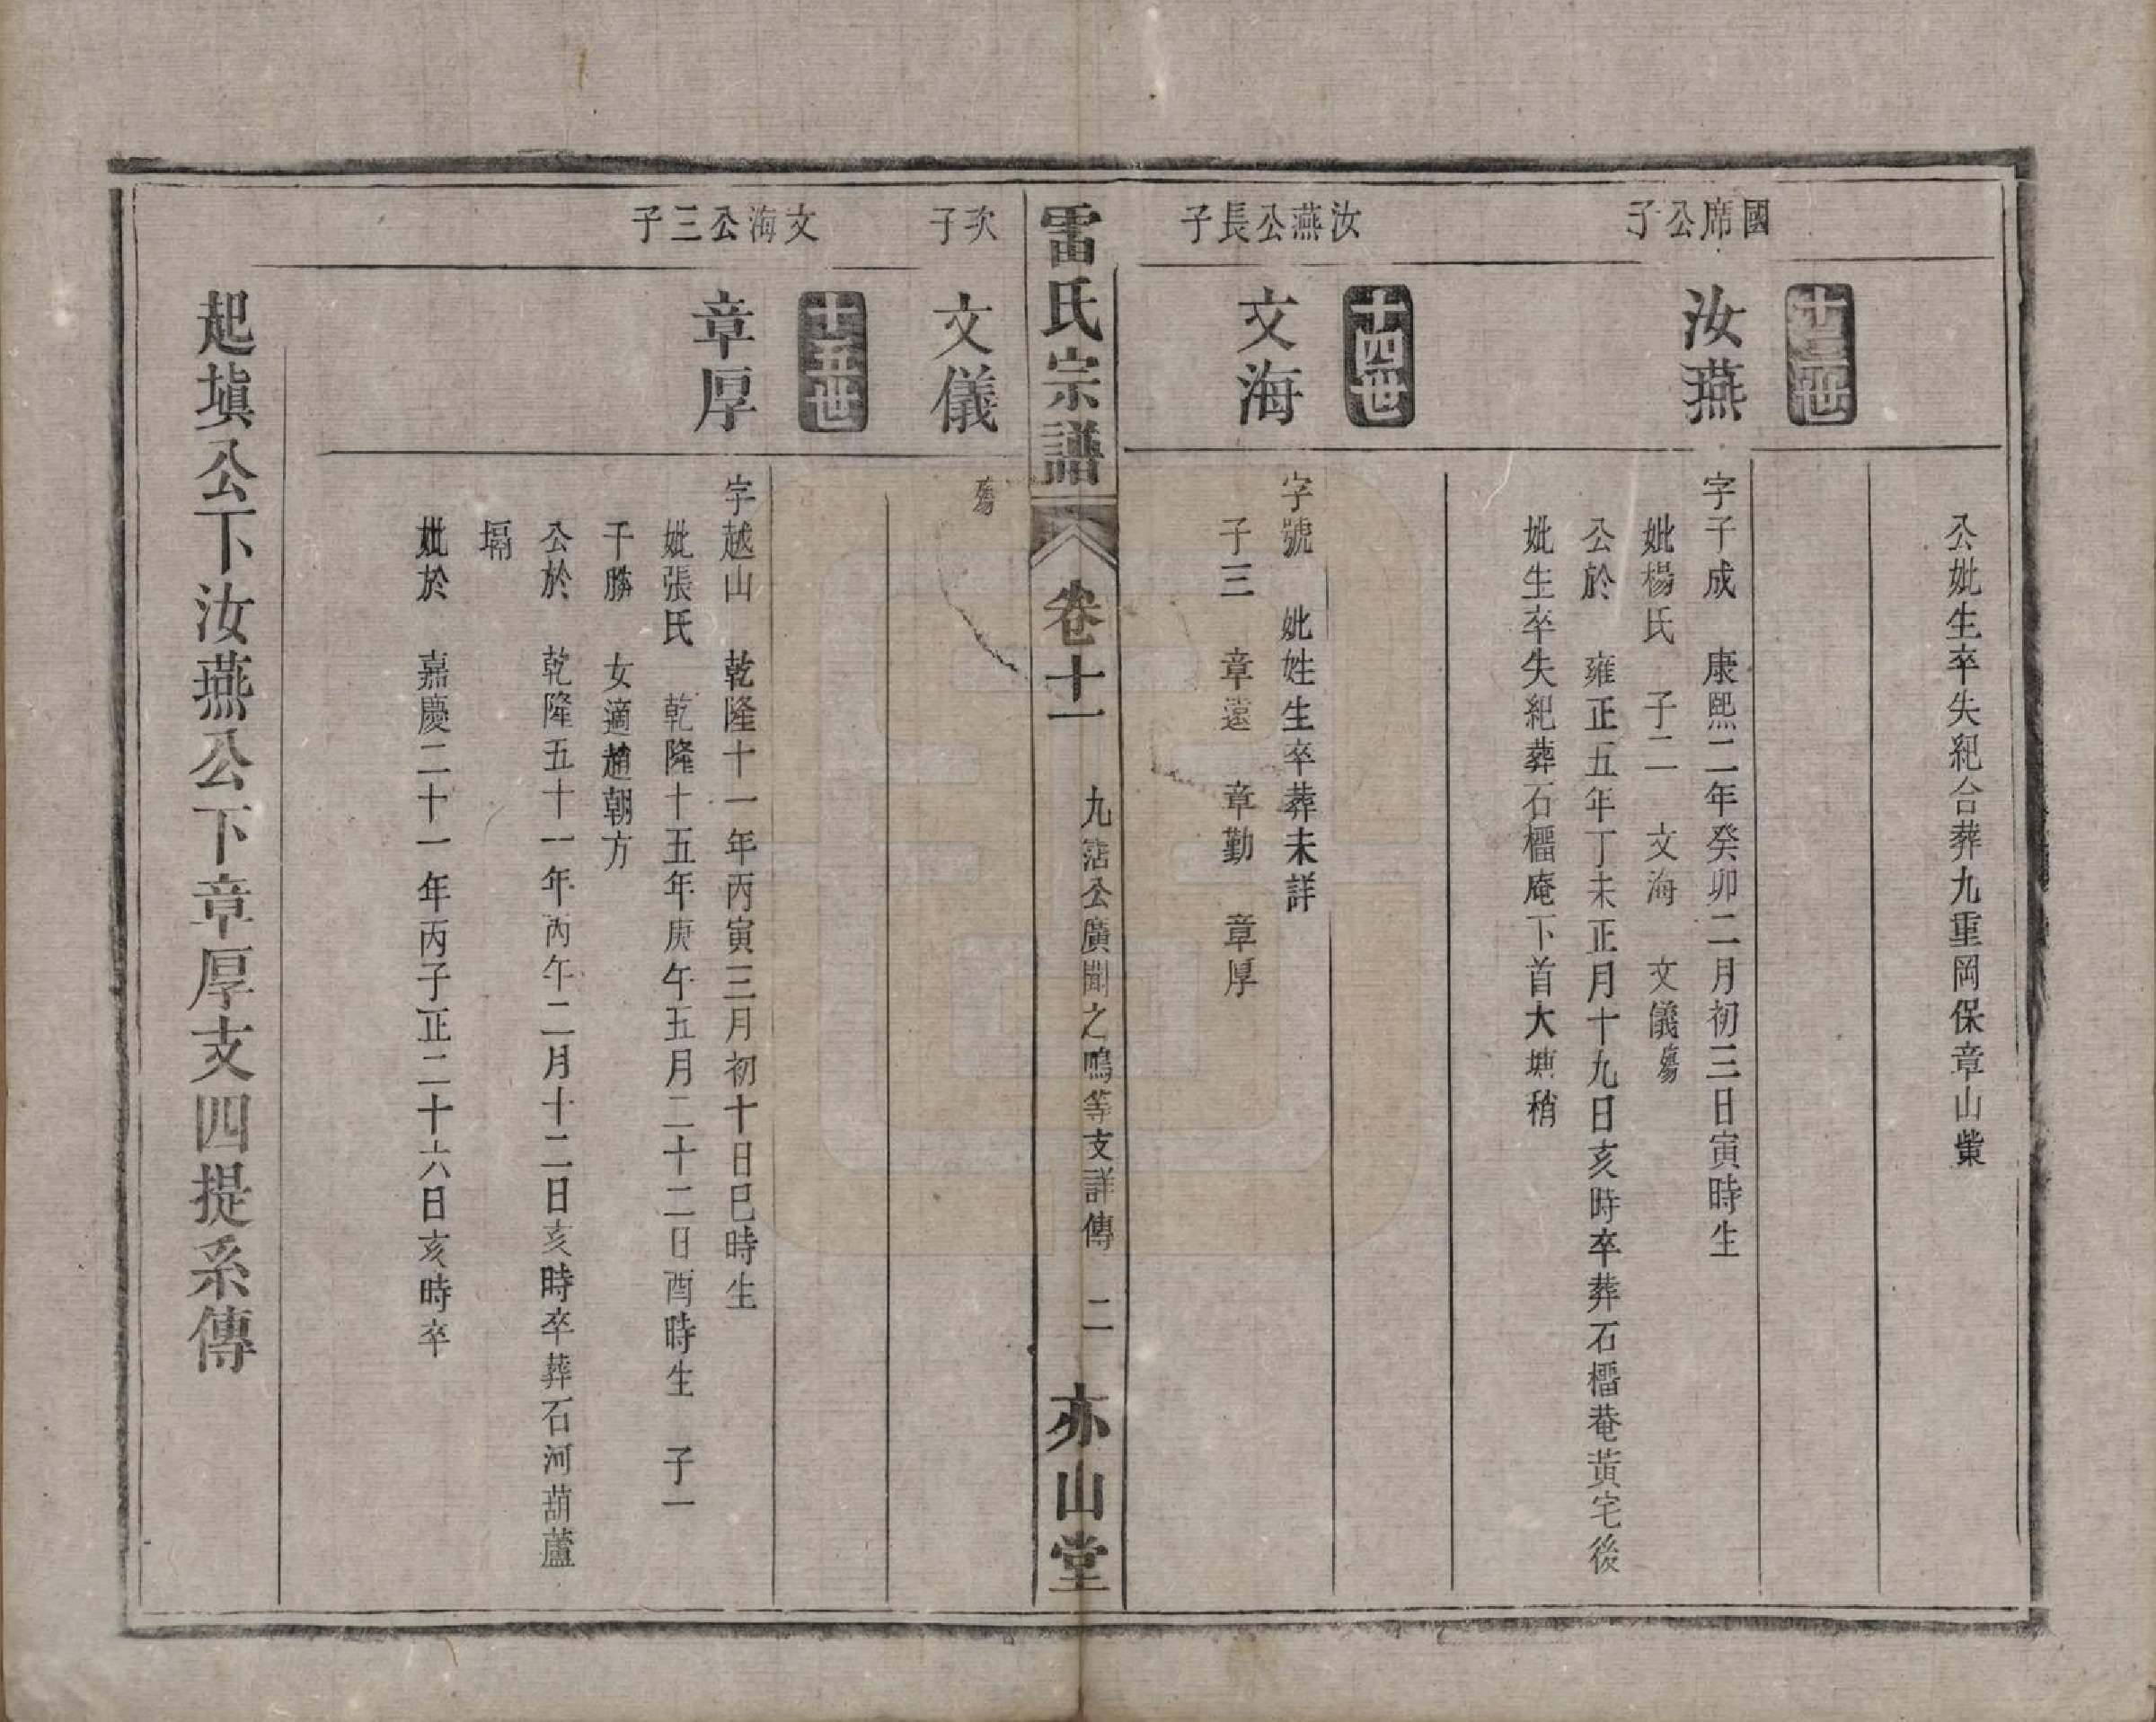 公妣生卒失紀合葬九重岡保章山
十三世
國席公子
汝燕
字子成　康熙二年癸卯二月初三日寅時生
妣楊氏　子二　文海　文儀殤
公於　雍正五年丁未正月十九日亥時卒葬石橊菴黃宅後
妣生卒失紀葬石橊庵下首大㙷稍
十四世
汝燕公長子
文海
字號　妣姓生卒葬未詳
子三　章遠　章勤　章厚
雷氏宗譜
卷十一
九㴞公廣聞之鳴等支詳傳
二
亦山堂
次子
文儀
殤
十五世
文海公三子
章厚
字越山　乾隆十一年丙寅三月初十日巳時生
妣張氏　乾隆十五年庚午五月二十二日酉時生　子一
千勝　女適趙朝方
公於　乾隆五十一年丙午二月十二日亥時卒葬石河葫蘆
塥
妣於　嘉慶二十一年丙子正二十六日亥時卒
起塡公下汝燕公下章厚支四提系傳